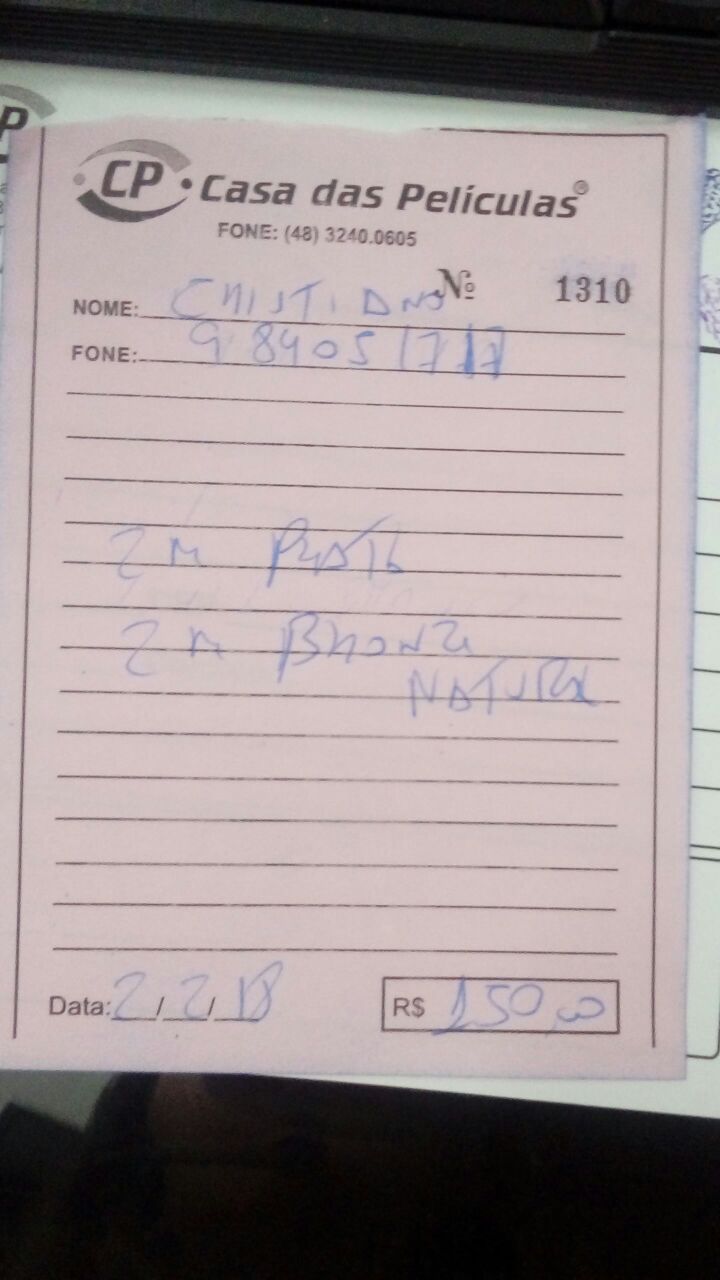 CP Casa das Películas®
FONE: (48) 3240.0605
Nº 1310
NOME: CRISTIANO
FONE: 984051717
2 M PRATA
2 M BRONZE
NATURAL
Data: 2/2/18 R$ 150,00